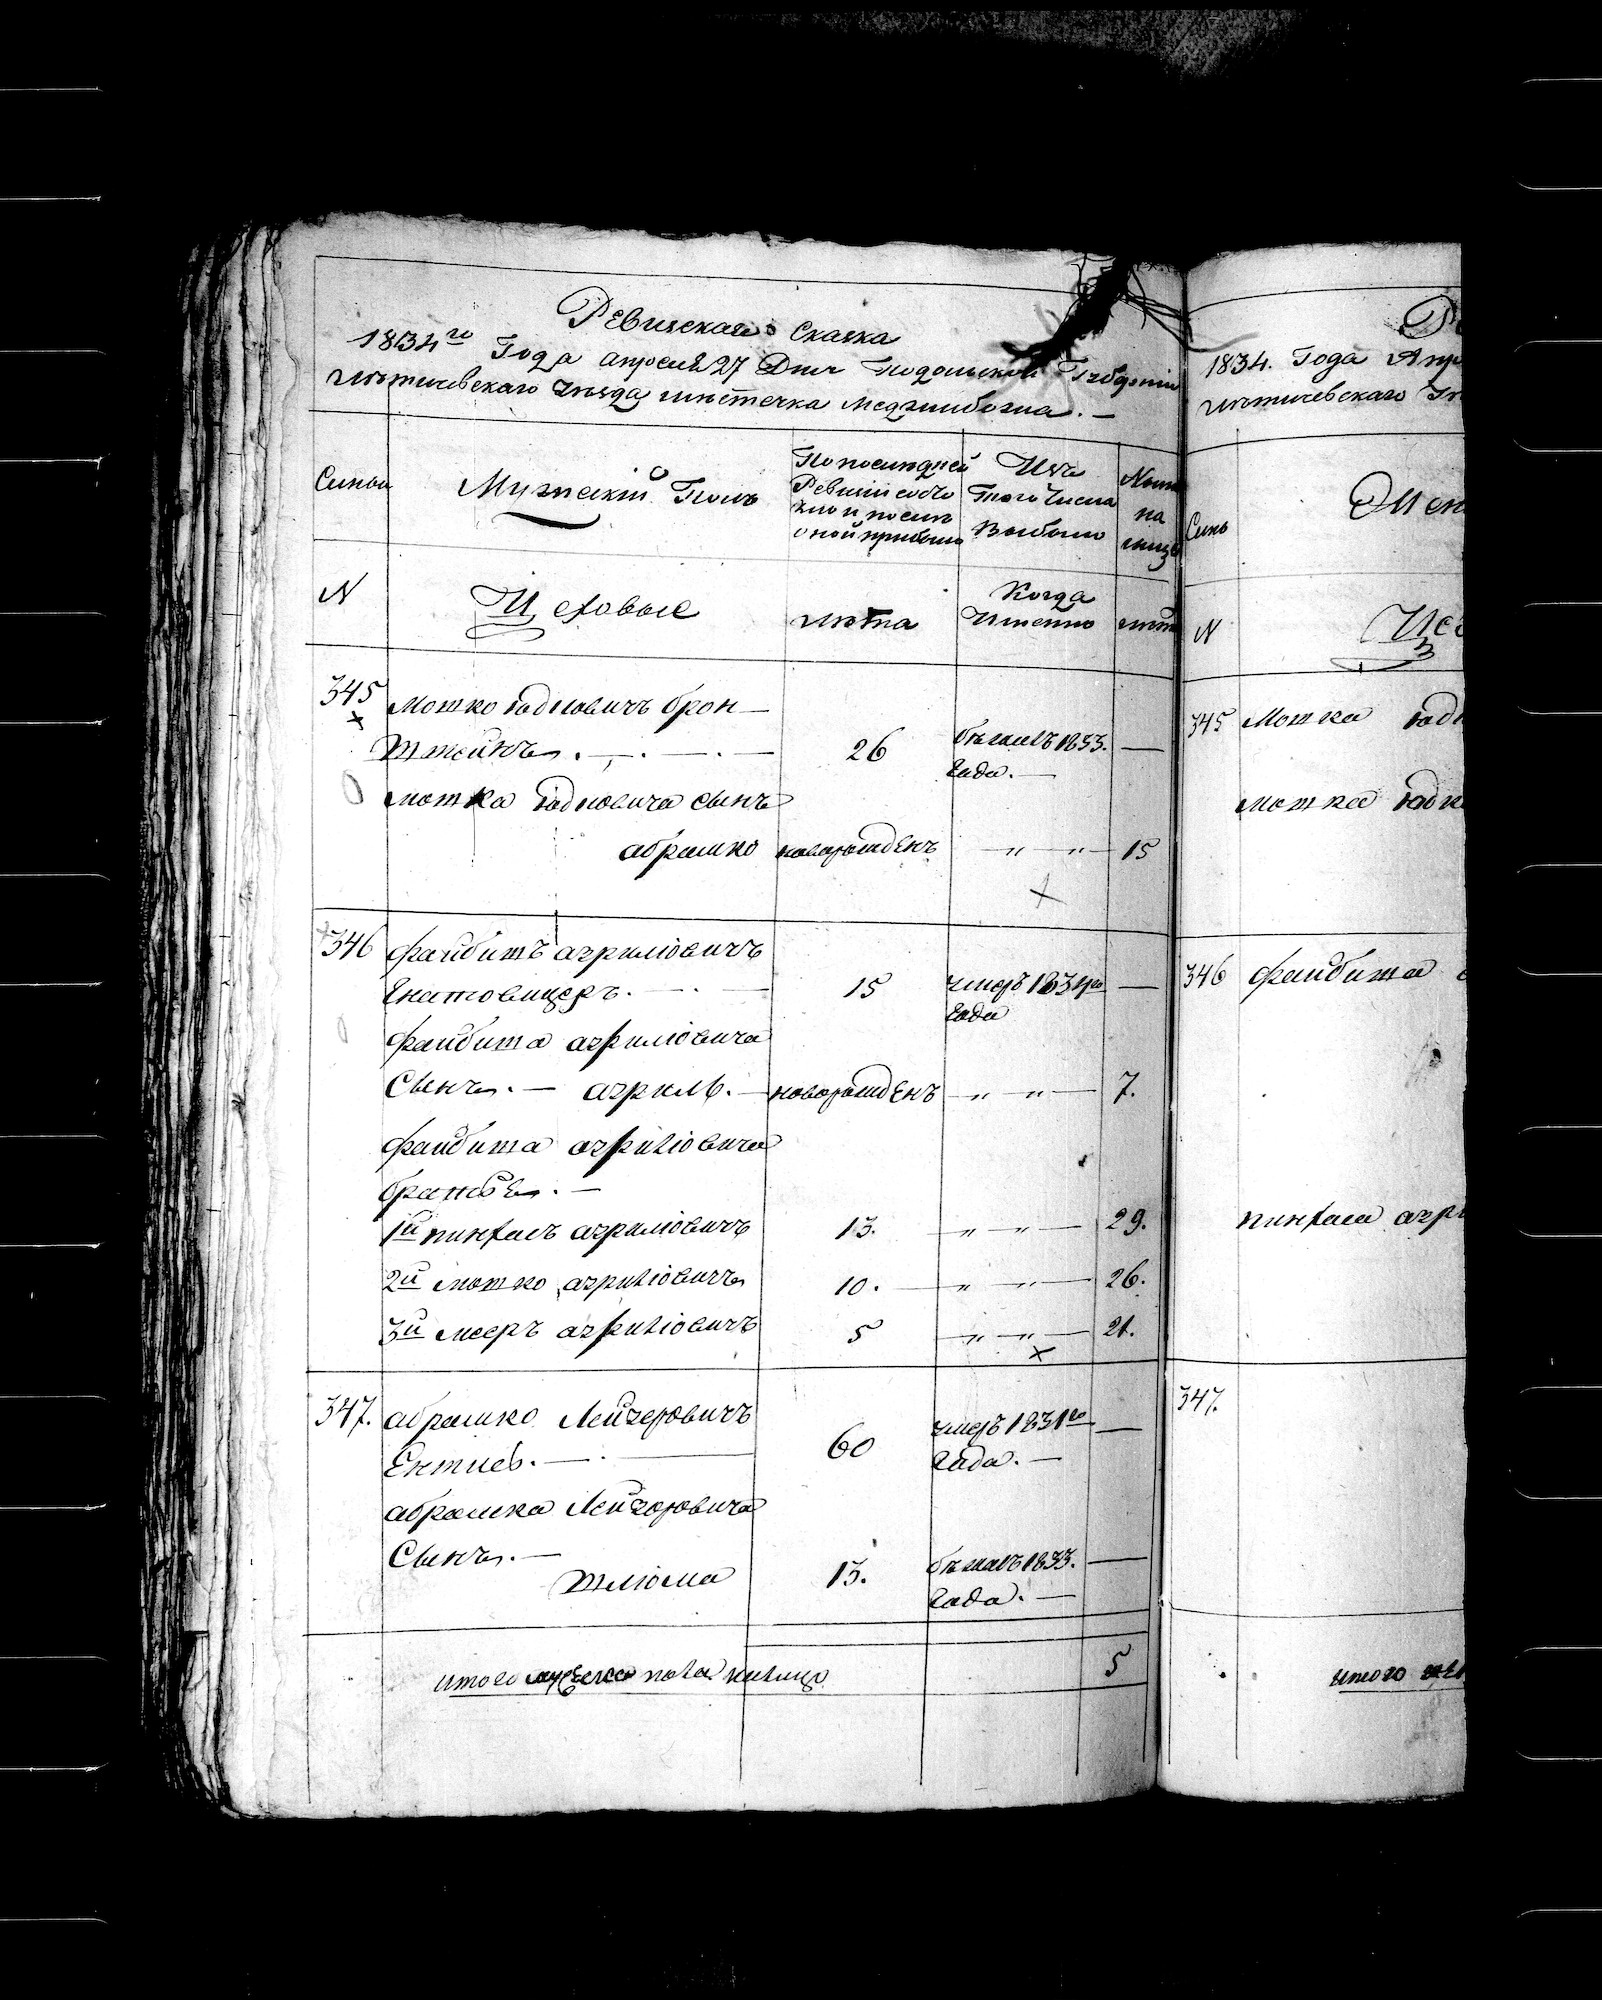 Ревизская Сказка
1834го Года апреля 27 Дня Подольской Губернiи
Летичевскаго уезда местечка Меджибожа. —
Семьи
Мужескiй Полъ
По последней
Ревизiи состо
яло и после
оной прибыло
Изъ
того числа
Выбыло
Ныне
на
лицо
N
Еврѣи
лета
Когда
Именно
лета
345
Мошко Юдковичъ брон—
штейнъ . — . —
26
бежалъ 1833.
Года. —
—
мошка Юдковича сынъ
абрамко
новорожденъ
— " — " —
15
346
файбишъ азрилiовичъ
15
умеръ 1831го
Года
—
файбиша азрилiовича
Сынъ. — азриль. —
новорожденъ
— " — " —
7.
файбиша азрилiовича
братья. —
1й пинхасъ азрилiовичъ
13.
— " — " —
29.
2й мошко азрилiовичъ
10.
— " — " —
26.
3й мееръ азрилiовичъ
5
— " — " —
21.
347.
абрамко Лейзеровичъ
60
умеръ 1831го
Года. —
—
абрамка Лейзеровича
Сынъ. —
шлiома
13.
бежалъ 1833.
Года. —
—
итого мужеска пола налицо
5
1834. Года Апр
Летичевскаго
Жен
N
345 Мошка Юдк
мошка Юдк
346 файбиша
пинхаса азри
347.
итого жен